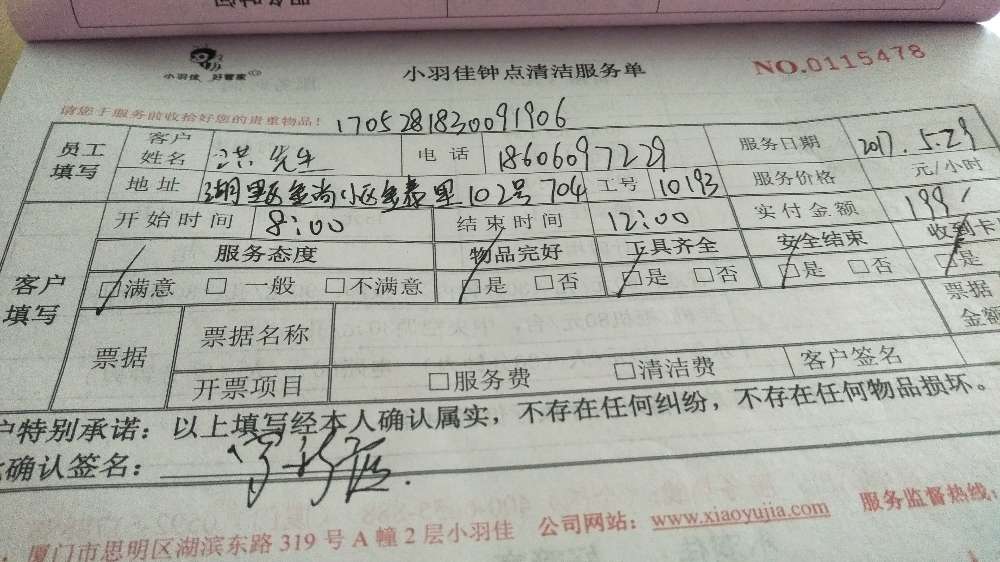 小羽佳 好管家
小羽佳钟点清洁服务单
NO.0115478
请您于服务前收拾好您的贵重物品！
1705281830091906
员工填写
客户姓名 洪先生 电话 18606097229 服务日期 2017.5.29
地址 湖里区金尚小区金泰里102号704 工号 10193 服务价格 元/小时
客户填写
开始时间 8:00 结束时间 12:00 实付金额 199
服务态度 物品完好 工具齐全 安全结束 收到卡
□满意 □一般 □不满意 □是 □否 □是 □否 □是 □否 □是
票据 票据名称 票据金额
开票项目 □服务费 □清洁费 客户签名
户特别承诺：以上填写经本人确认属实，不存在任何纠纷，不存在任何物品损坏。
确认签名：
厦门市思明区湖滨东路 319 号 A 幢 2 层小羽佳 公司网站：www.xiaoyujia.com 服务监督热线